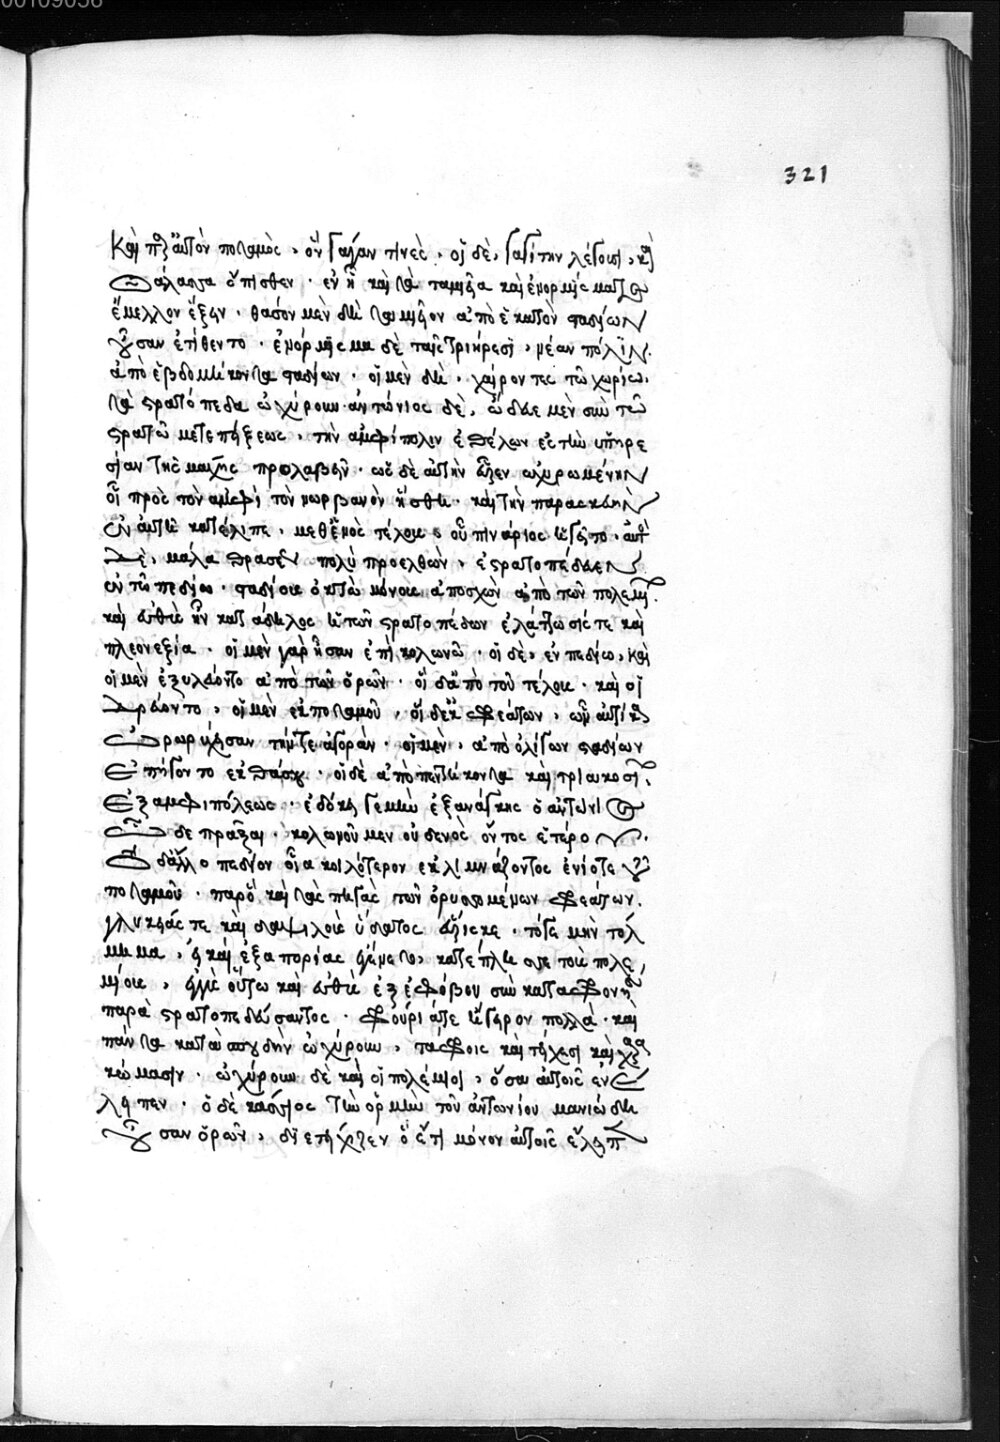 καὶ πρὸς αὐτὸν ποταμὸς, ὃν γάγαν τινὲς, οἱ δὲ, γαγίτην λέγουσι, καὶ
θάλασσα ὄπισθεν. ἐν ἧ καὶ τὰ ταμιεῖα καὶ ἐνορμίσματα
ἔμελλον ἕξειν. θάσον μὲν δὴ ταμιεῖον ἀπὸ ἑκατὸν σταδίων
οὖσαν ἐτίθεντο. ἐνόρμισμα δὲ ταῖς τριήρεσι, νέαν πόλιν.
ἀπὸ ἑβδομήκοντα σταδίων. οἱ μὲν δὴ, χαίροντες τῶ χωρίω,
τὰ στρατόπεδα ὠχύρουν. ἀντώνιος δὲ, ὥδευε μὲν σὺν τῶ
στρατῶ μετεπείξεως, τὴν ἀμφίπολιν ἐθέλων ἐς τὴν ὑπηρε
σίαν τῆς μάχης προλαβεῖν. ὡς δὲ αὐτὴν εὗρεν ὠχυρωμένην
οἱ πρὸς τὸν ἀμφὶ τὸν νωρβανὸν ἥσθη. καὶ τὴν παρασκευὴν
ἐν αὐτῆ κατέλιπε, μεθἑνὸς τέλους, οὗ πινάριος ἡγεῖτο. αὐτὸς
δὲ, μάλα θρασέως πολὺ προελθὼν, ἐστρατοπέδευεν
ἐν τῶ πεδίω. σταδίους ὀκτὼ μόνους ἀποσχὼν ἀπὸ τῶν πολεμίων.
καὶ εὐθὺς ἦν κατάδηλος ἡ τῶν στρατοπέδων ἐλάττωσίς τε καὶ
πλεονεξία. οἱ μὲν γὰρ ἦσαν ἐπὶ κολωνοῦ. οἱ δὲ, ἐν πεδίω, καὶ
οἱ μὲν ἐξυλεύοντο ἀπὸ τῶν ὀρῶν. οἱ δἀπὸ τοῦ τέλους. καὶ οἱ
δρεύοντο, οἱ μὲν ἐκ ποταμοῦ, οἱ δἐκ φρεάτων, ὧν αὐτίκα
ὠρωρύχεσαν τήν τε ἀγορὰν. οἱ μὲν, ἀπὸ ὀλίγων σταδίων
ἐπήγοντο ἐκ θάσου. οἱ δὲ ἀπὸ πεντήκοντα καὶ τριακοσίων,
ἐξ ἀμφιπόλεως. ἐδόκει γε μὴν ἐξανάγκης ὁ ἀντώνιος
ὧδε πρᾶξαι. κολωνοῦ μὲν οὐδενὸς ὄντος ἑτέρου.
τὸ δἄλλο πεδίον οἷα κοιλότερον ἐκλιμνάζοντος ἐνίοτε τοῦ
ποταμοῦ. παρὃ καὶ τὰς πηγὰς τῶν ὀρυσσομένων φρεάτων.
γλυκείας τε καὶ δαψιλοῦς ὕδατος εὕρισκε. τό γε μὴν τόλ
μημα, εἰ καὶ ἐξαπορίας ἐγένετο, κατέπλησσε τοὺς πολε
μίους, ἐγγὺς οὕτω καὶ εὐθὺς ἐξ ἐφόδου σὺν καταφρονήσει
παραστρατοπεδεύσαντος. φρούριά τε ἤγειρον πολλὰ. καὶ
πάντα κατὰ σπουδὴν ὠχύρουν, τάφροις καὶ τείχεσι καὶ χαρα
κώμασιν. ὠχύρουν δὲ καὶ οἱ πολέμιοι, ὅσα αὐτοῖς ἐνέ
λειπεν. ὁ δὲ κάσσιος τὴν ὁρμὴν τοῦ ἀντωνίου μανιώδη
οὖσαν ὁρῶν, διετείχιζεν ὃ ἔτι μόνον αὐτοῖς ἔλειπεν
321